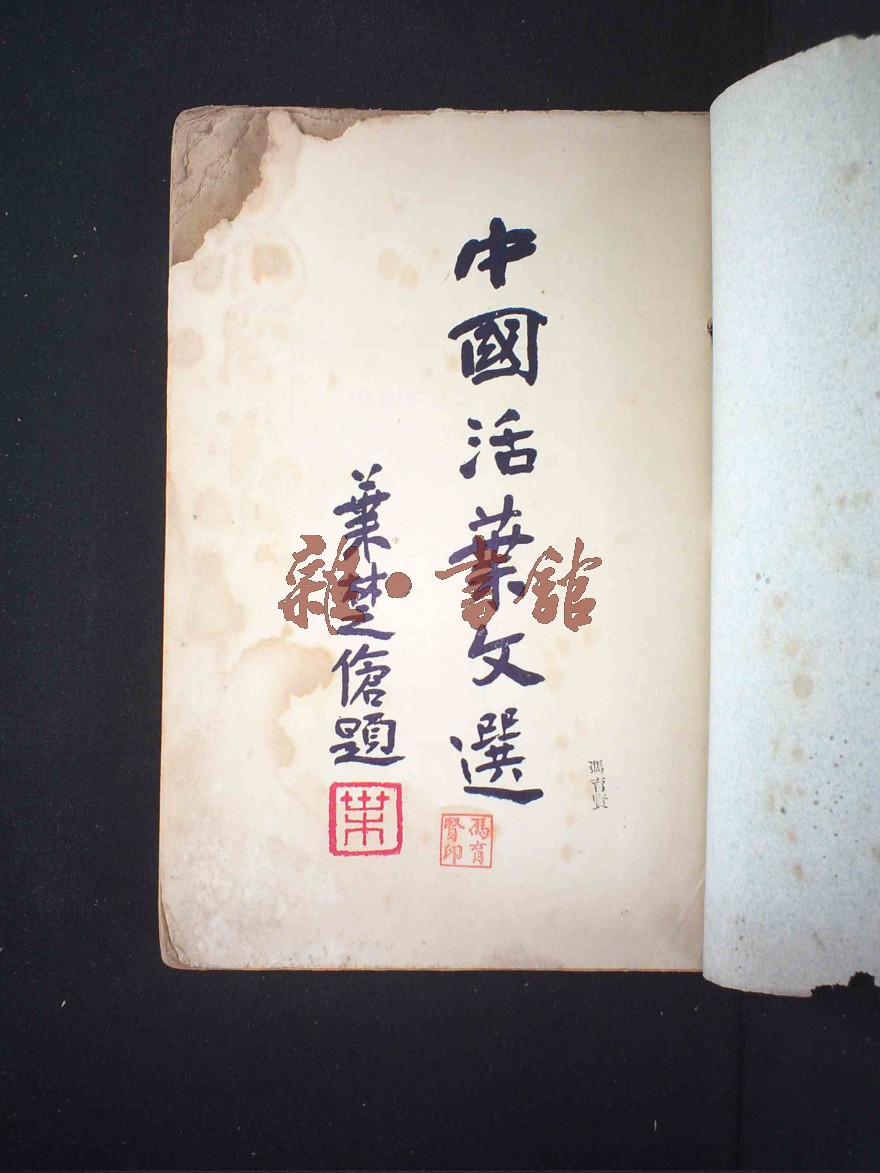 馮育賢
中國活葉文選
馮育賢印
葉楚傖題
葉
雜·書館